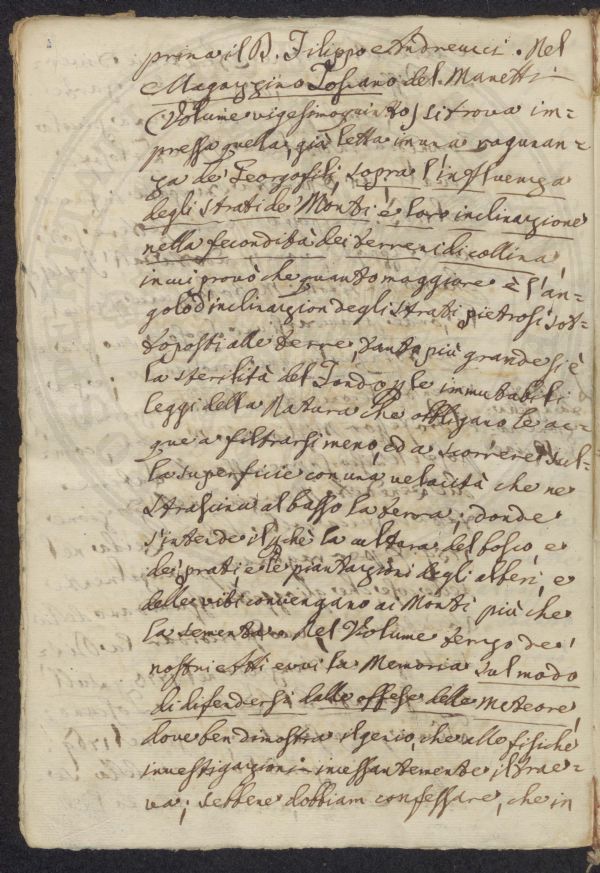 prima il B. Filippo Andreucci. Nel
Magazzino Toscano del Manetti
(Volume vigesimoquinto) si trova im=
pressa quella, già letta in una ragunan=
za de' Georgofili, sopra l'influenza
degli strati de' Monti, e loro inclinazione
nella fecondità dei terreni di collina,
in cui provò che quanto maggiore è l'an=
golo d'inclinazion degli strati pietrosi sot=
toposti alle terre, tanto più grande si è
la sterilità del fondo p le immutabili
leggi della Natura che obbligano le ac=
que a filtrarsi meno, ed a scorrere sul=
la superficie con una velocità che ne
strascina al basso la terra; donde
s'intende il pchè la cultura del bosco, e
dei prati e le piantazioni degli alberi, e
delle viti convengano ai Monti più che
la sementa. Nel Volume terzo de'
nostri Atti evvi la Memoria sul modo
di difendersi dalle offese delle meteore,
dove ben dimostra il genio, che alle fisiche
investigazioni incessantemente il trae=
va; sebbene dobbiam confessare, che in